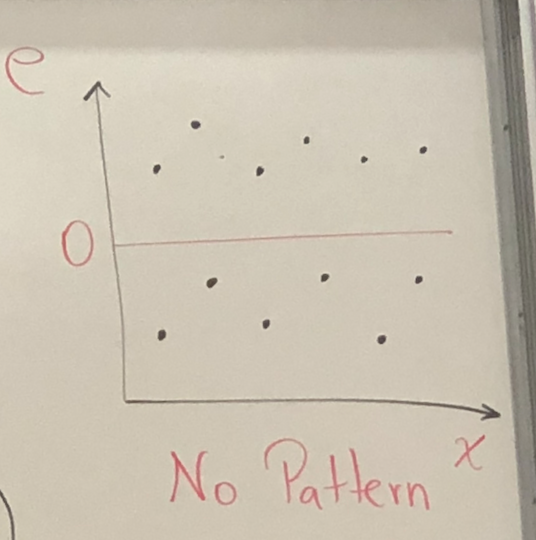 e
0
x
No Pattern